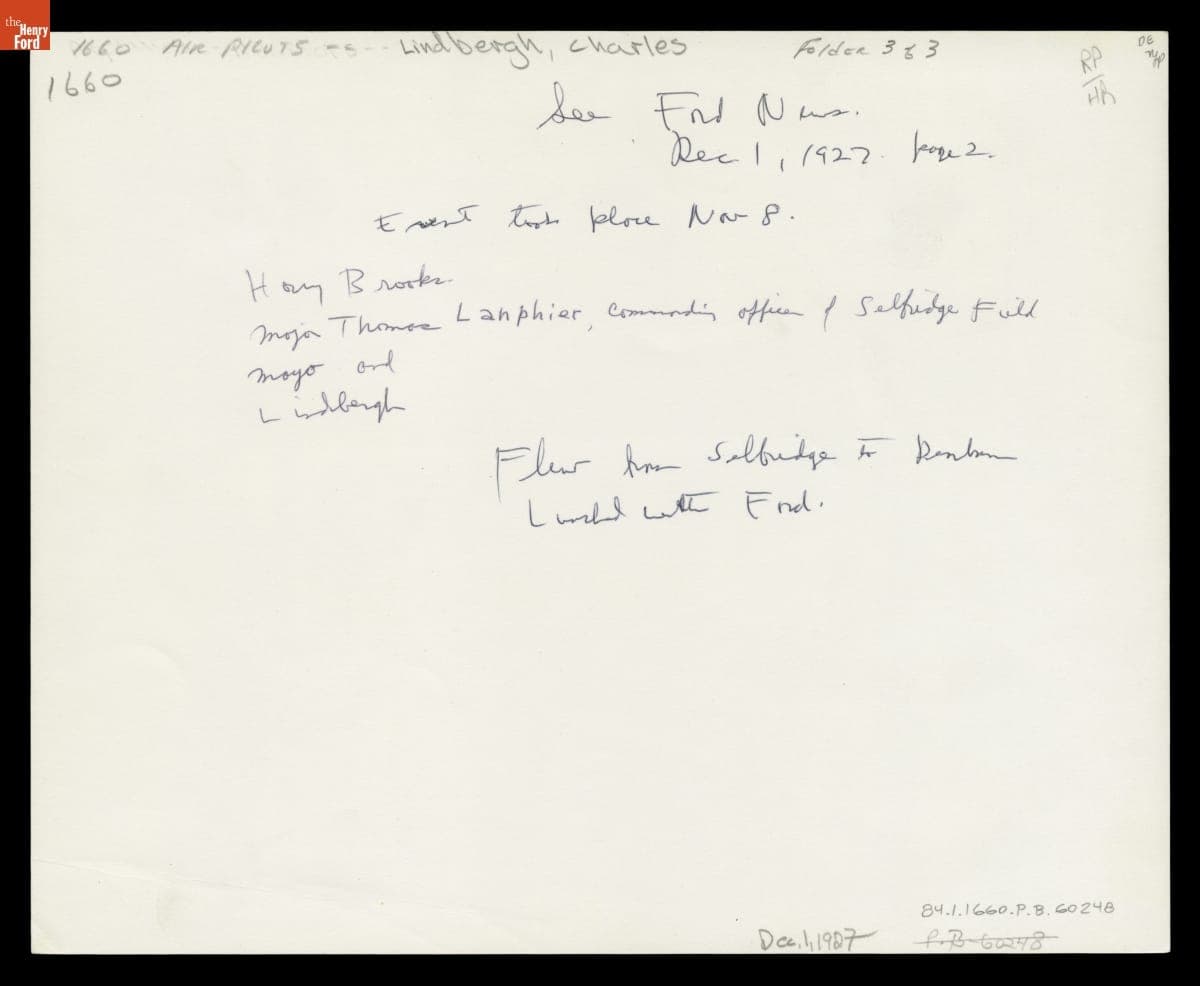 the Henry Ford
1660 AIR PILOTS -- Lindbergh, Charles Folder 3 of 3
1660
RP
HR
See Ford News.
Dec 1, 1927. page 2.
Event took place Nov 8.
Harry Brooks
Major Thomas Lanphier, commanding officer of Selfridge Field
Mayo and
Lindbergh
Flew from Selfridge to Dearborn
Lunched with Ford.
84.1.1660.P.B.60248
Dec. 1, 1927 P.B. 60248